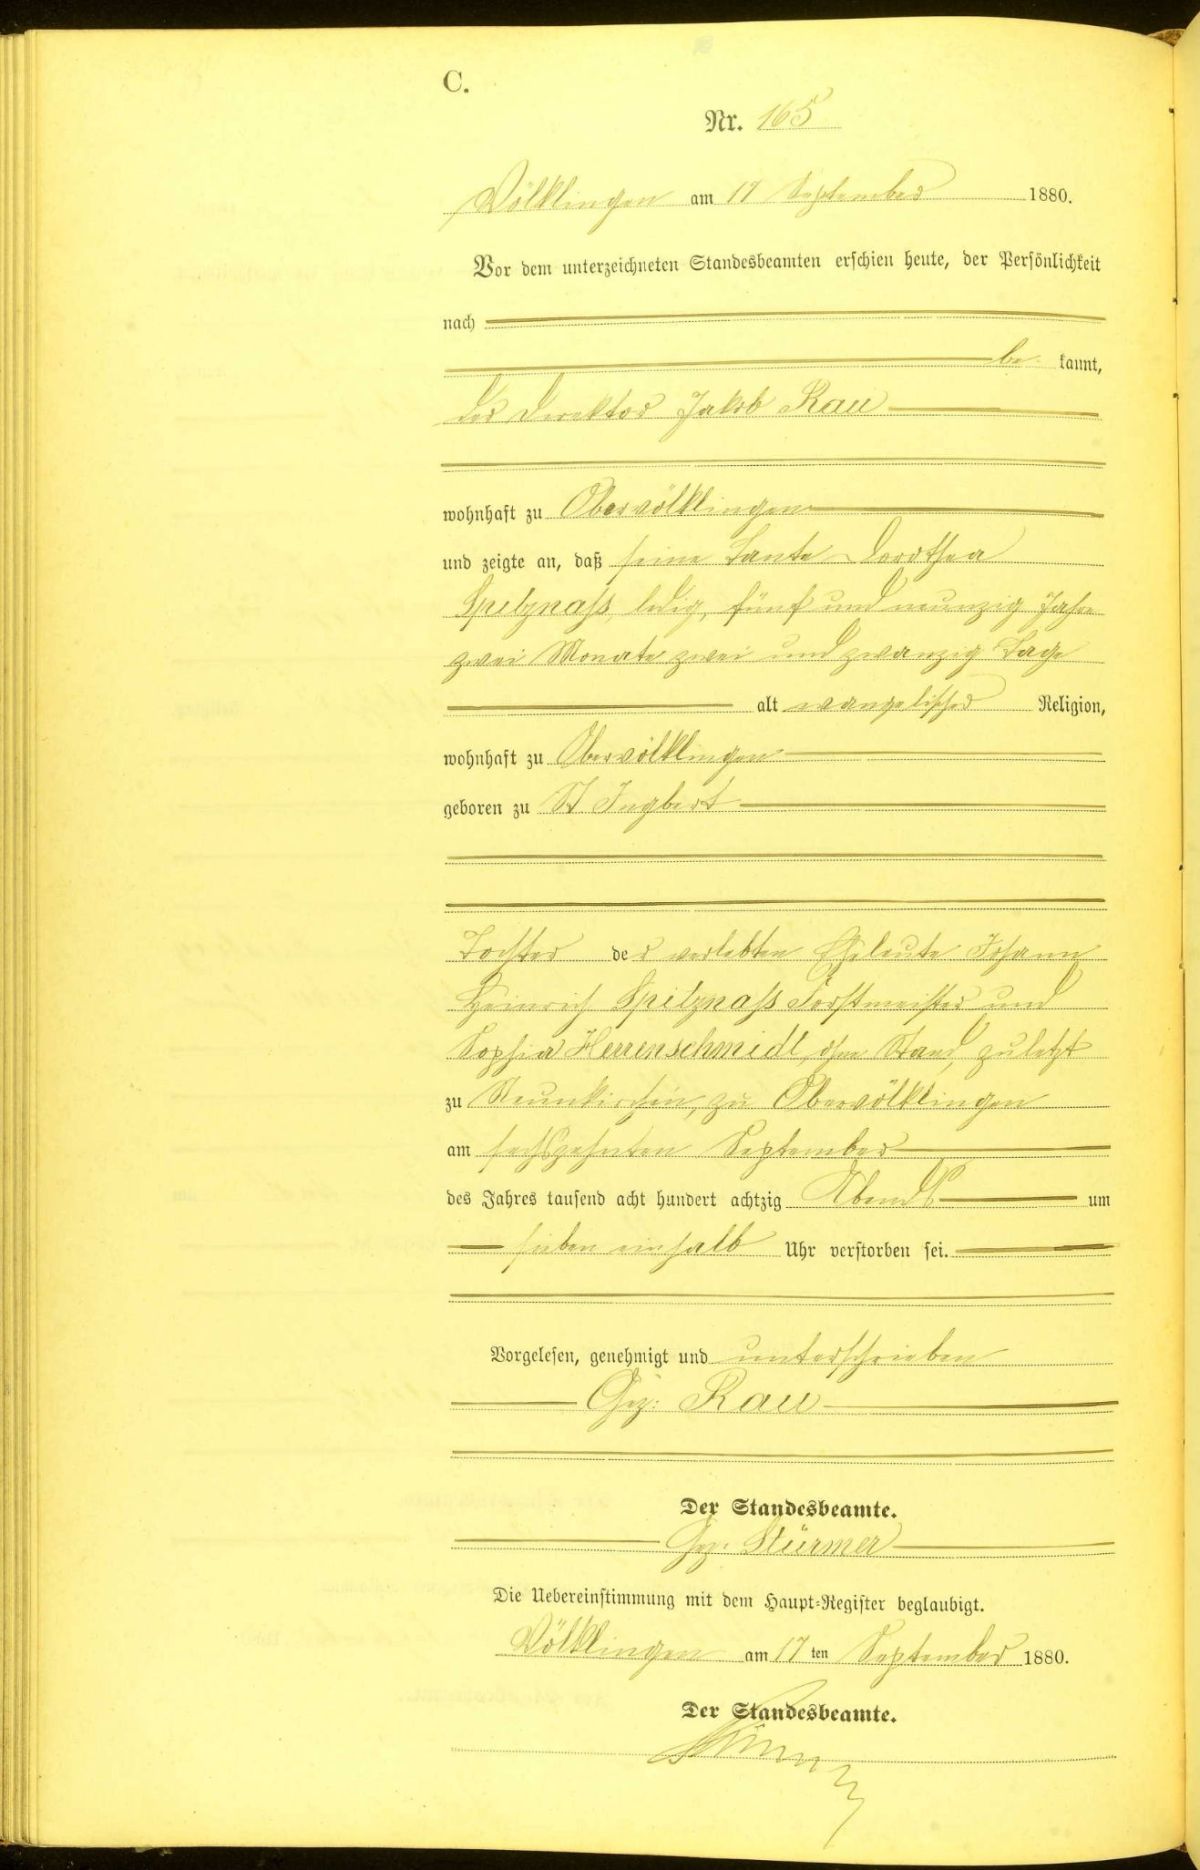 C.
Nr. 165
Völklingen am 17 September 1880.
Vor dem unterzeichneten Standesbeamten erschien heute, der Persönlichkeit
nach
be kannt,
der Direktor Jakob Rau
wohnhaft zu Obervölklingen
und zeigte an, daß seine Tante Dorothea
Spelznass, ledig, fünf und neunzig Jahre
zwei Monate zwei und zwanzig Tage
alt evangelischer Religion,
wohnhaft zu Obervölklingen
geboren zu St Ingbert
Tochter der verlebten Eheleute Johann
Heinrich Spelznass Forstmeister und
Sophia Herrenschmidt, ohne Stand, zuletzt
zu Neunkirchen, zu Obervölklingen
am sechszehnten September
des Jahres tausend acht hundert achtzig Abends um
sieben einhalb Uhr verstorben sei.
Vorgelesen, genehmigt und unterschrieben
Gez: Rau
Der Standesbeamte.
Gez: Stürmer
Die Uebereinstimmung mit dem Haupt-Register beglaubigt.
Völklingen am 17 ten September 1880.
Der Standesbeamte.
Stürmer